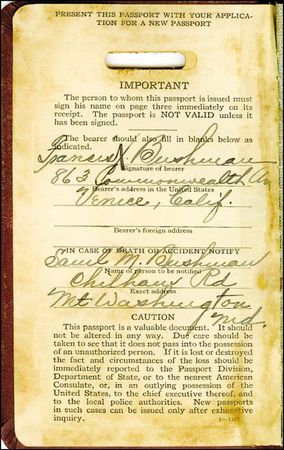 PRESENT THIS PASSPORT WITH YOUR APPLICA-
TION FOR A NEW PASSPORT
IMPORTANT
The person to whom this passport is issued must
sign his name on page three immediately on its
receipt. The passport is NOT VALID unless it
has been signed.
The bearer should also fill in blanks below as
indicated.
Francis X Bushman
Signature of bearer
863 Commonwealth Av
Bearer's address in the United States
Venice, Calif.
Bearer's foreign address
IN CASE OF DEATH OR ACCIDENT NOTIFY
M. Bushman
Name of person to be notified
Rd
Exact address
Mt Washington
Md.
CAUTION
This passport is a valuable document. It should
not be altered in any way. Due care should be
taken to see that it does not pass into the possession
of an unauthorized person. If it is lost or destroyed
the fact and circumstances of the loss should be
immediately reported to the Passport Division,
Department of State, or to the nearest American
Consulate, or, in an outlying possession of the
United States, to the chief executive thereof, and to
the local police authorities. New passports
in such cases can be issued only after exhaustive
inquiry.